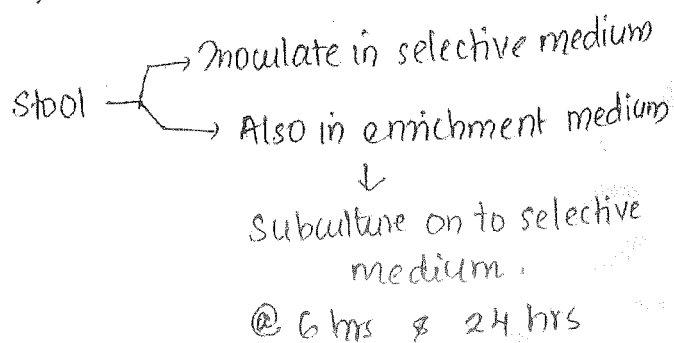 Stool → Inoculate in selective medium
→ Also in enrichment medium
↓
Subculture on to selective
medium.
@ 6 hrs & 24 hrs